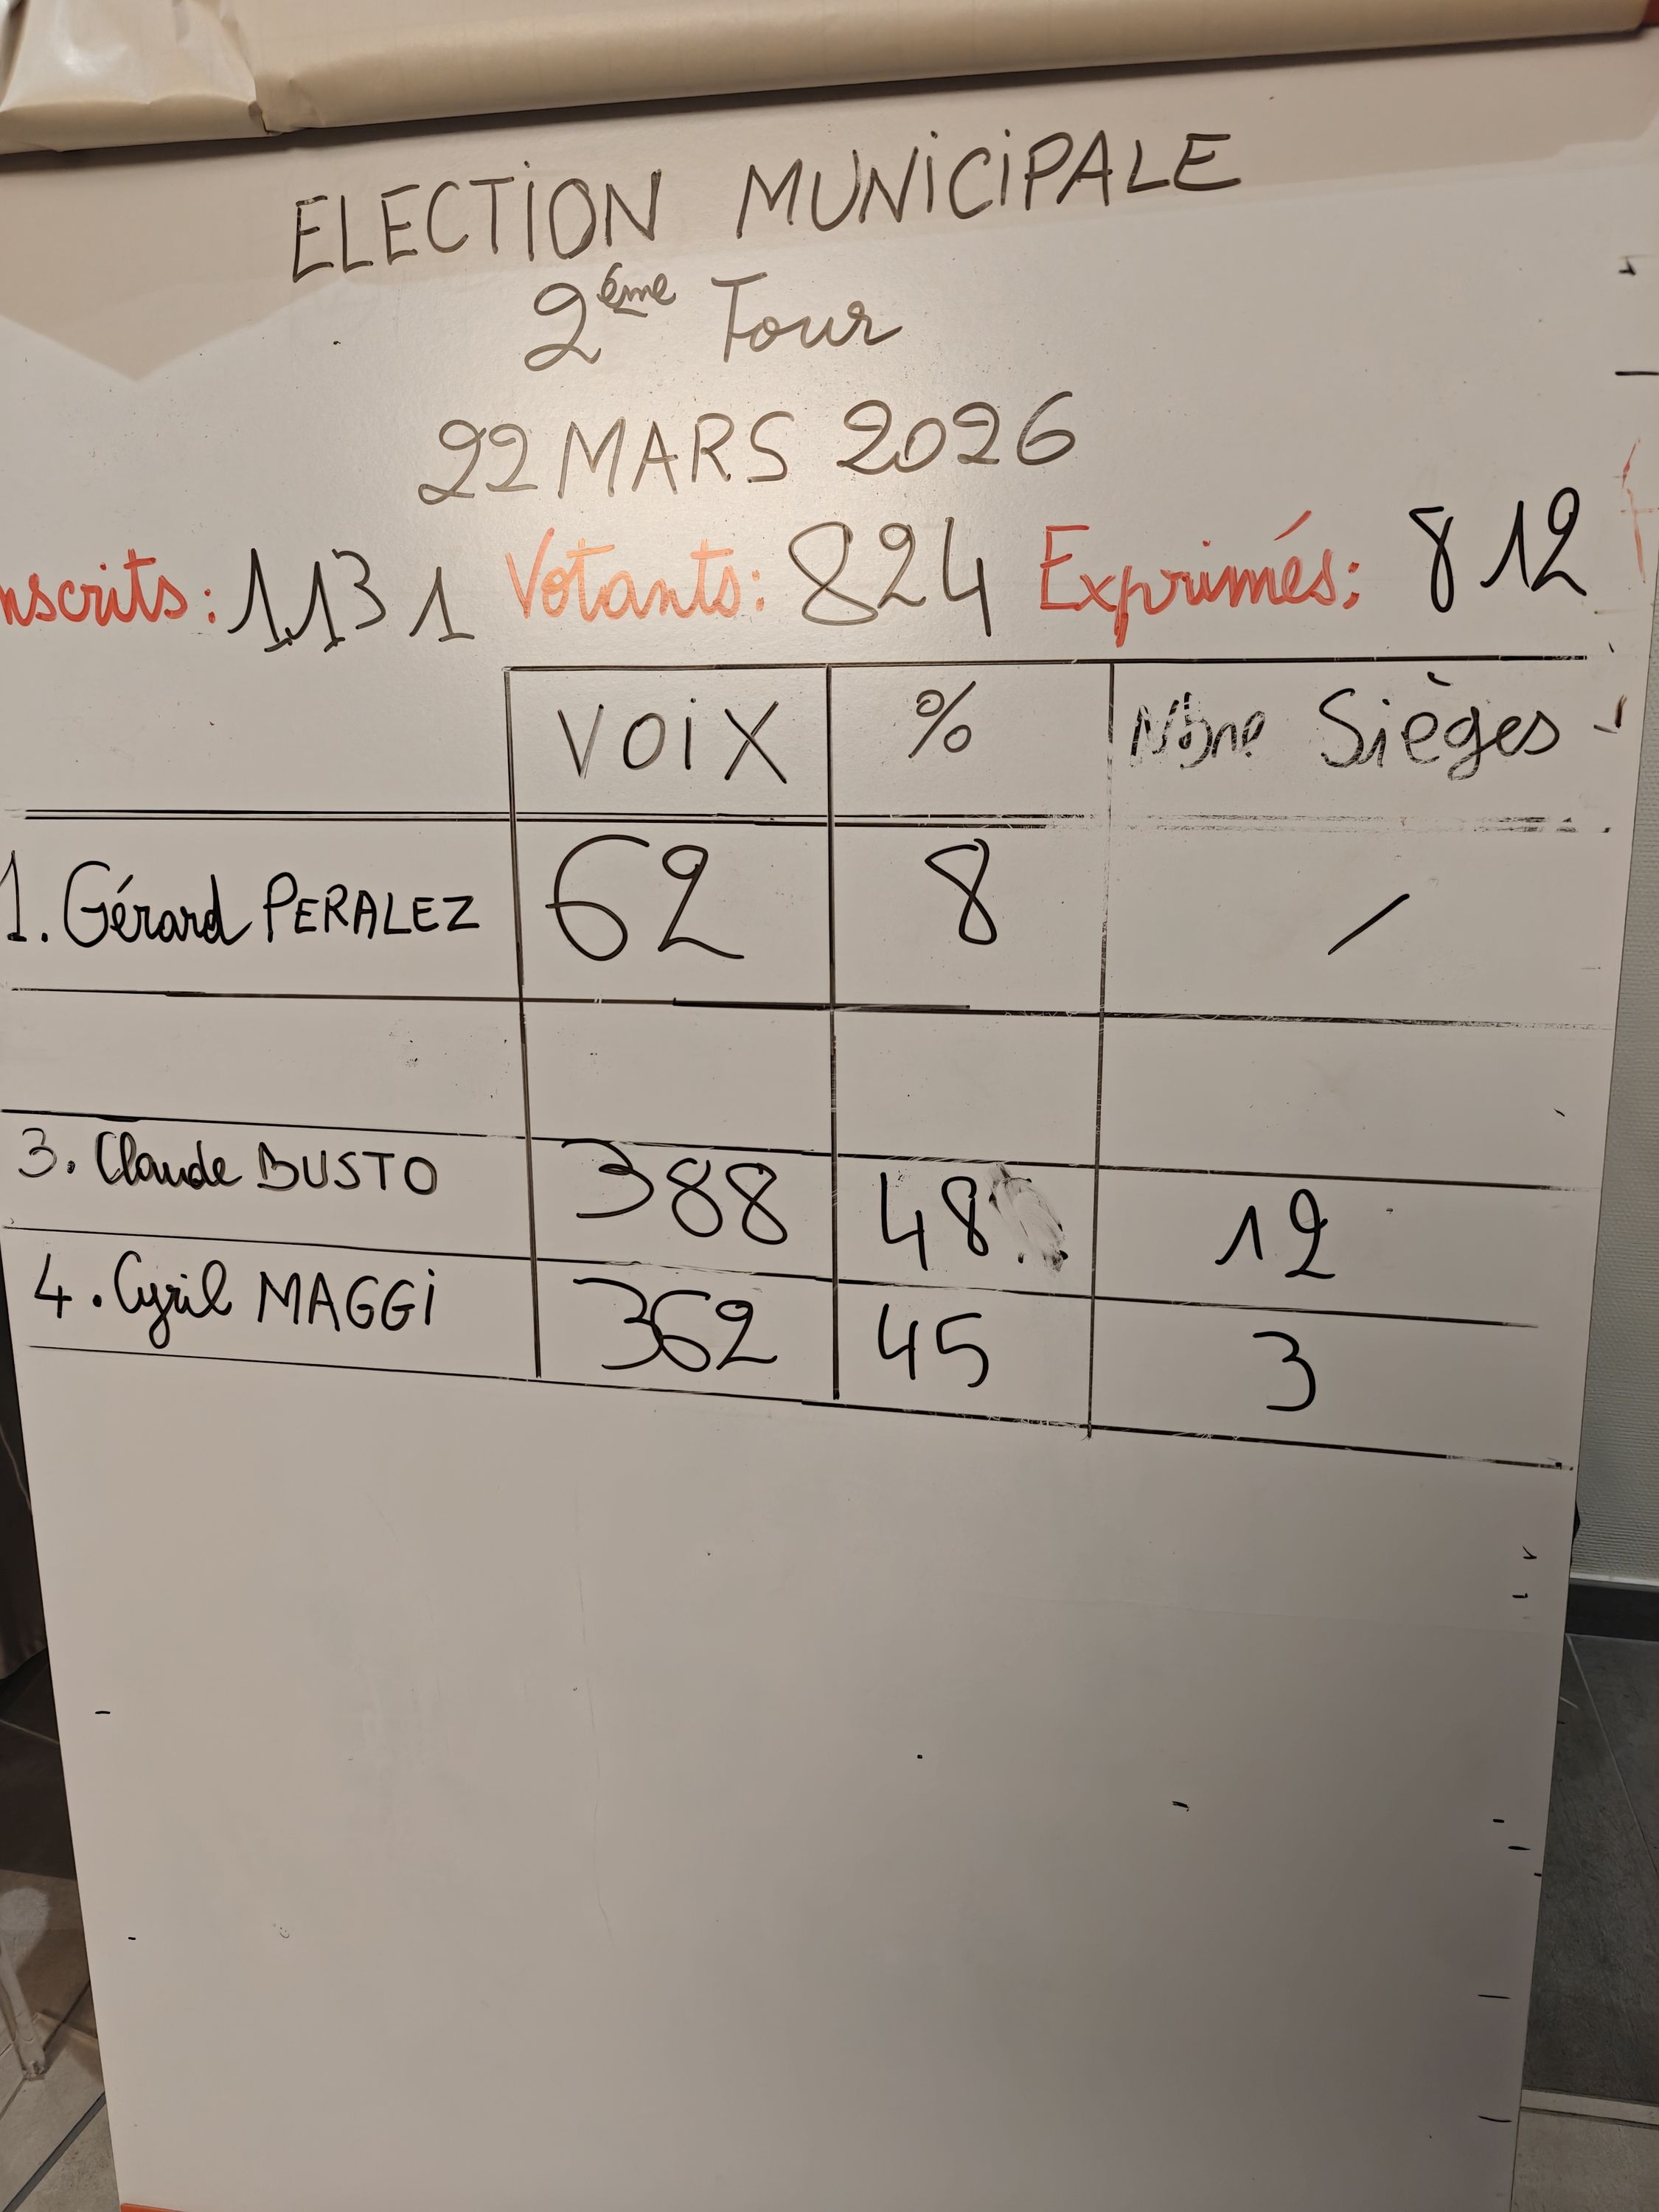 ELECTION MUNICIPALE
2ème Tour
22 MARS 2026
nscrits: 1131 Votants: 824 Exprimés: 812
VOIX % Nbre Sièges
1. Gérard PERALEZ 62 8 /
3. Claude BUSTO 388 48 12
4. Cyril MAGGI 362 45 3